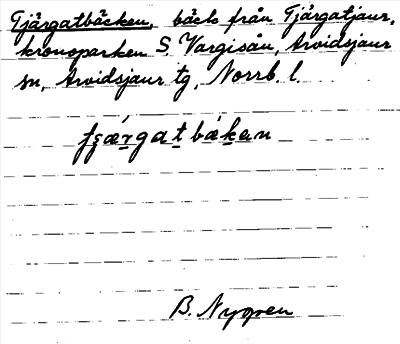 Tjårgatbäcken, bäck från Tjårgatjaur,
kronoparken S. Vargisån, Arvidsjaur
sn, Arvidsjaur tg, Norrb. l.
B. Nygren